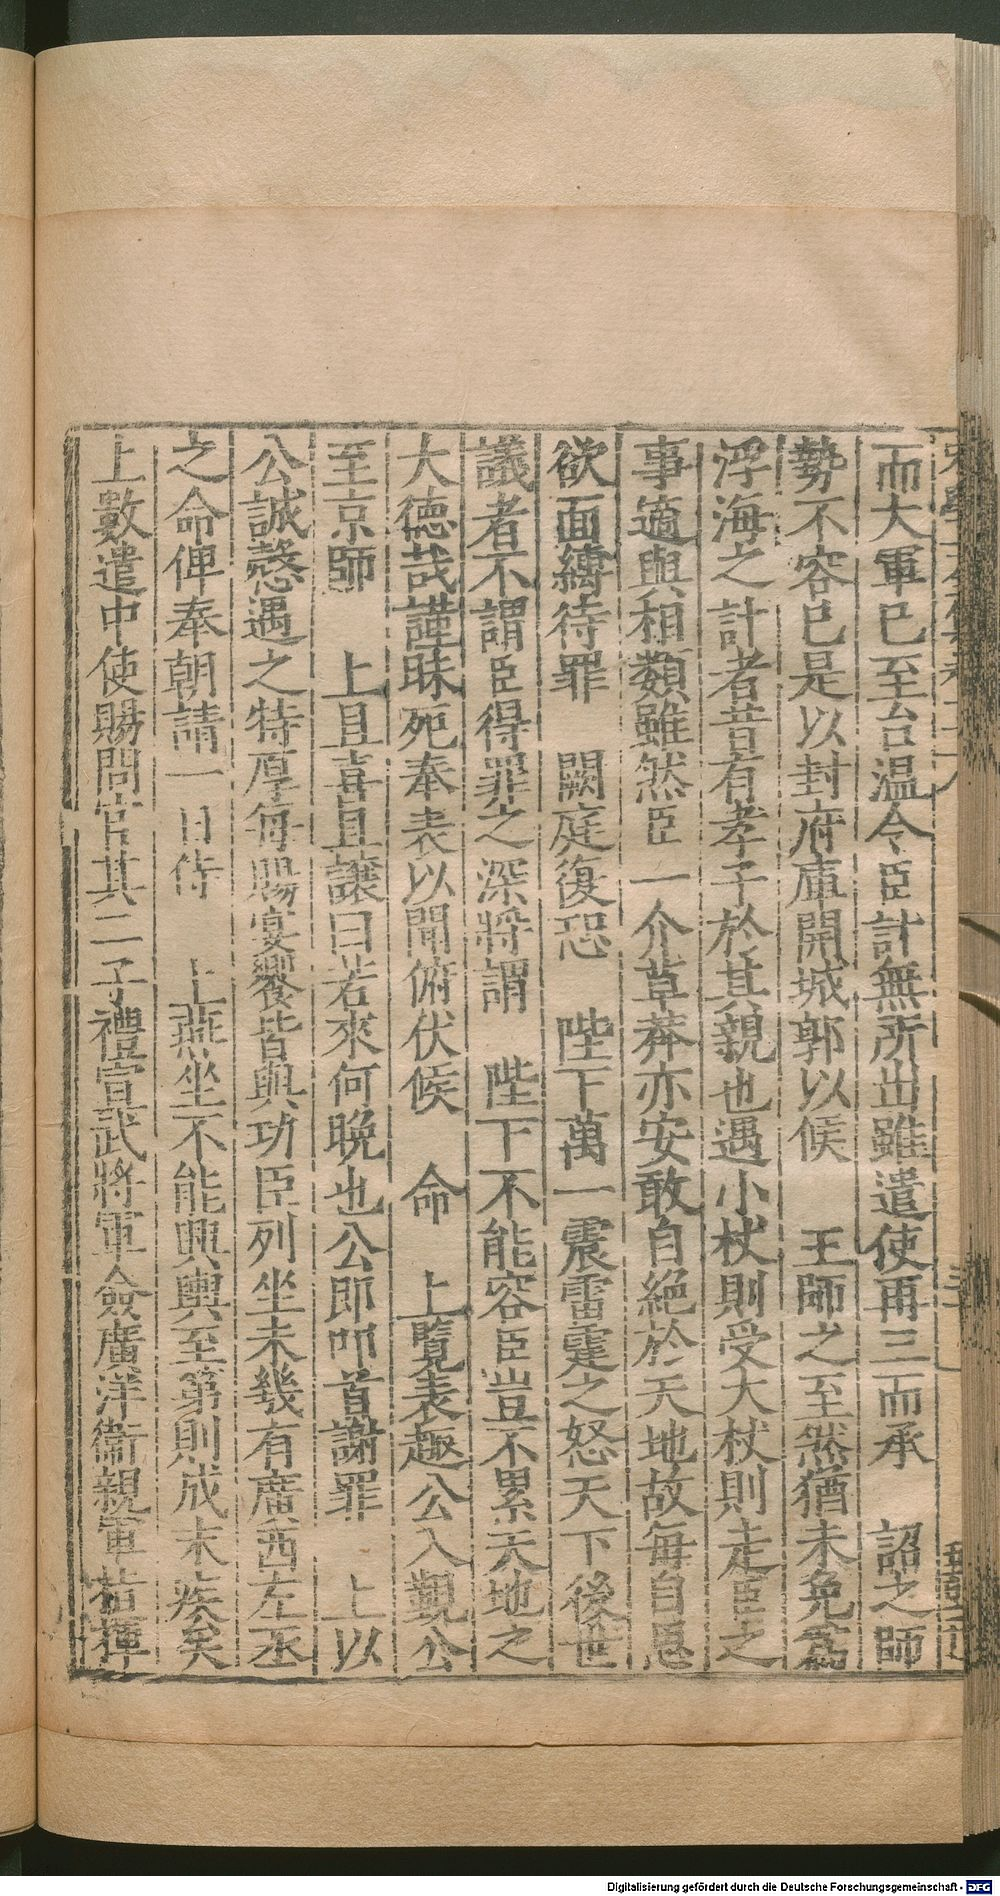 而大軍已至台温令臣計無所出雖遣使再三而承　詔之師
勢不容已是以封府庫開城郭以候　王師之至然猶未免為
浮海之計者昔有孝子於其親也遇小杖則受大杖則走臣之
事適與相類雖然臣一介草莽亦安敢自絶於天地故每自恖
欲面縛待罪　闕庭復恐　陛下萬一震雷霆之怒天下後世
議者不謂臣得罪之深將謂　陛下不能容臣豈不累天地之
大德㦲謹昧死奉表以聞俯伏候　命　上覽表趣公入覲公
至京師　上且喜且讓曰若來何晩也公即叩首謝罪　上以
公誠慤遇之特厚每賜宴饗皆與功臣列坐未幾有廣西左丞
之命俾奉朝請一日侍　上燕坐不能興輿至第則成末疾矣
上數遣中使賜問官其二子禮宣武將軍僉廣洋衛親軍指揮
Digitalisierung gefördert durch die Deutsche Forschungsgemeinschaft - DFG